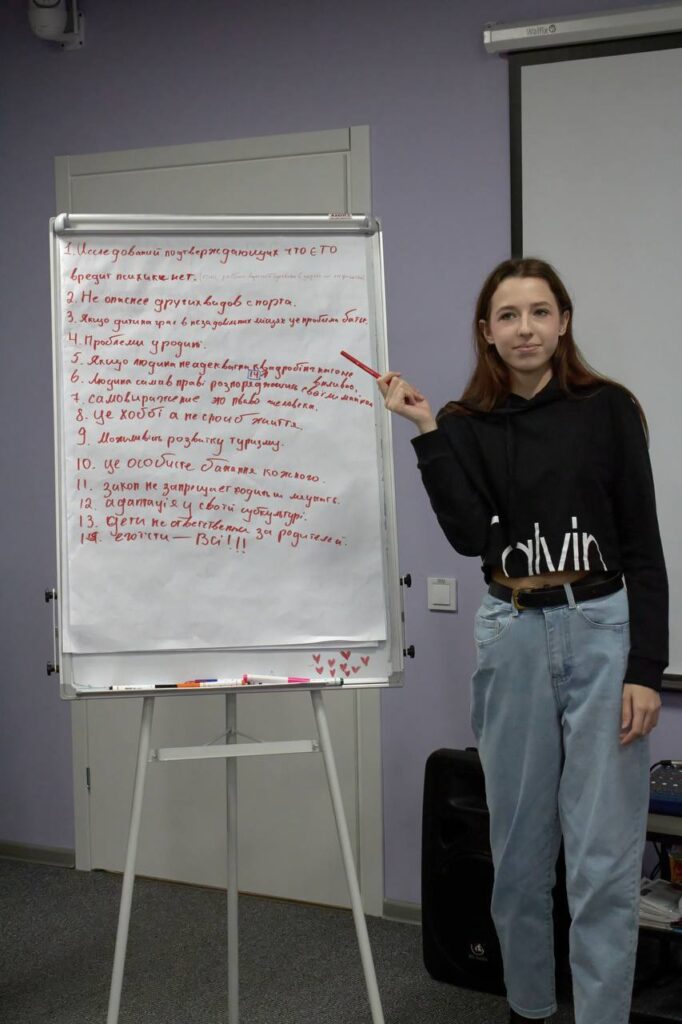 Walfix
1. Исследований подтверждающих что єто
вредит психики нет.
2. Не опаснее других видов спорта.
3. Якщо дитина грає в незадовільних місцях це проблема батьк.
4. Проблеми у родині.
5. Якщо людина не адекватна квадробінг на не
впливає.
6. Людина сама в праві розпоряджатись своїм
14
7. самовиражение это право человека.
8. це хоббі а не спосіб життя
9. Можливість розвитку туризму.
10. це особисте бажання кожного.
11. закон не запрещает ходить и мяукать.
12. адаптація у своїй субкультурі.
13. дети не ответственны за родителей.
14. егоїсти — Всі!!!
Calvin